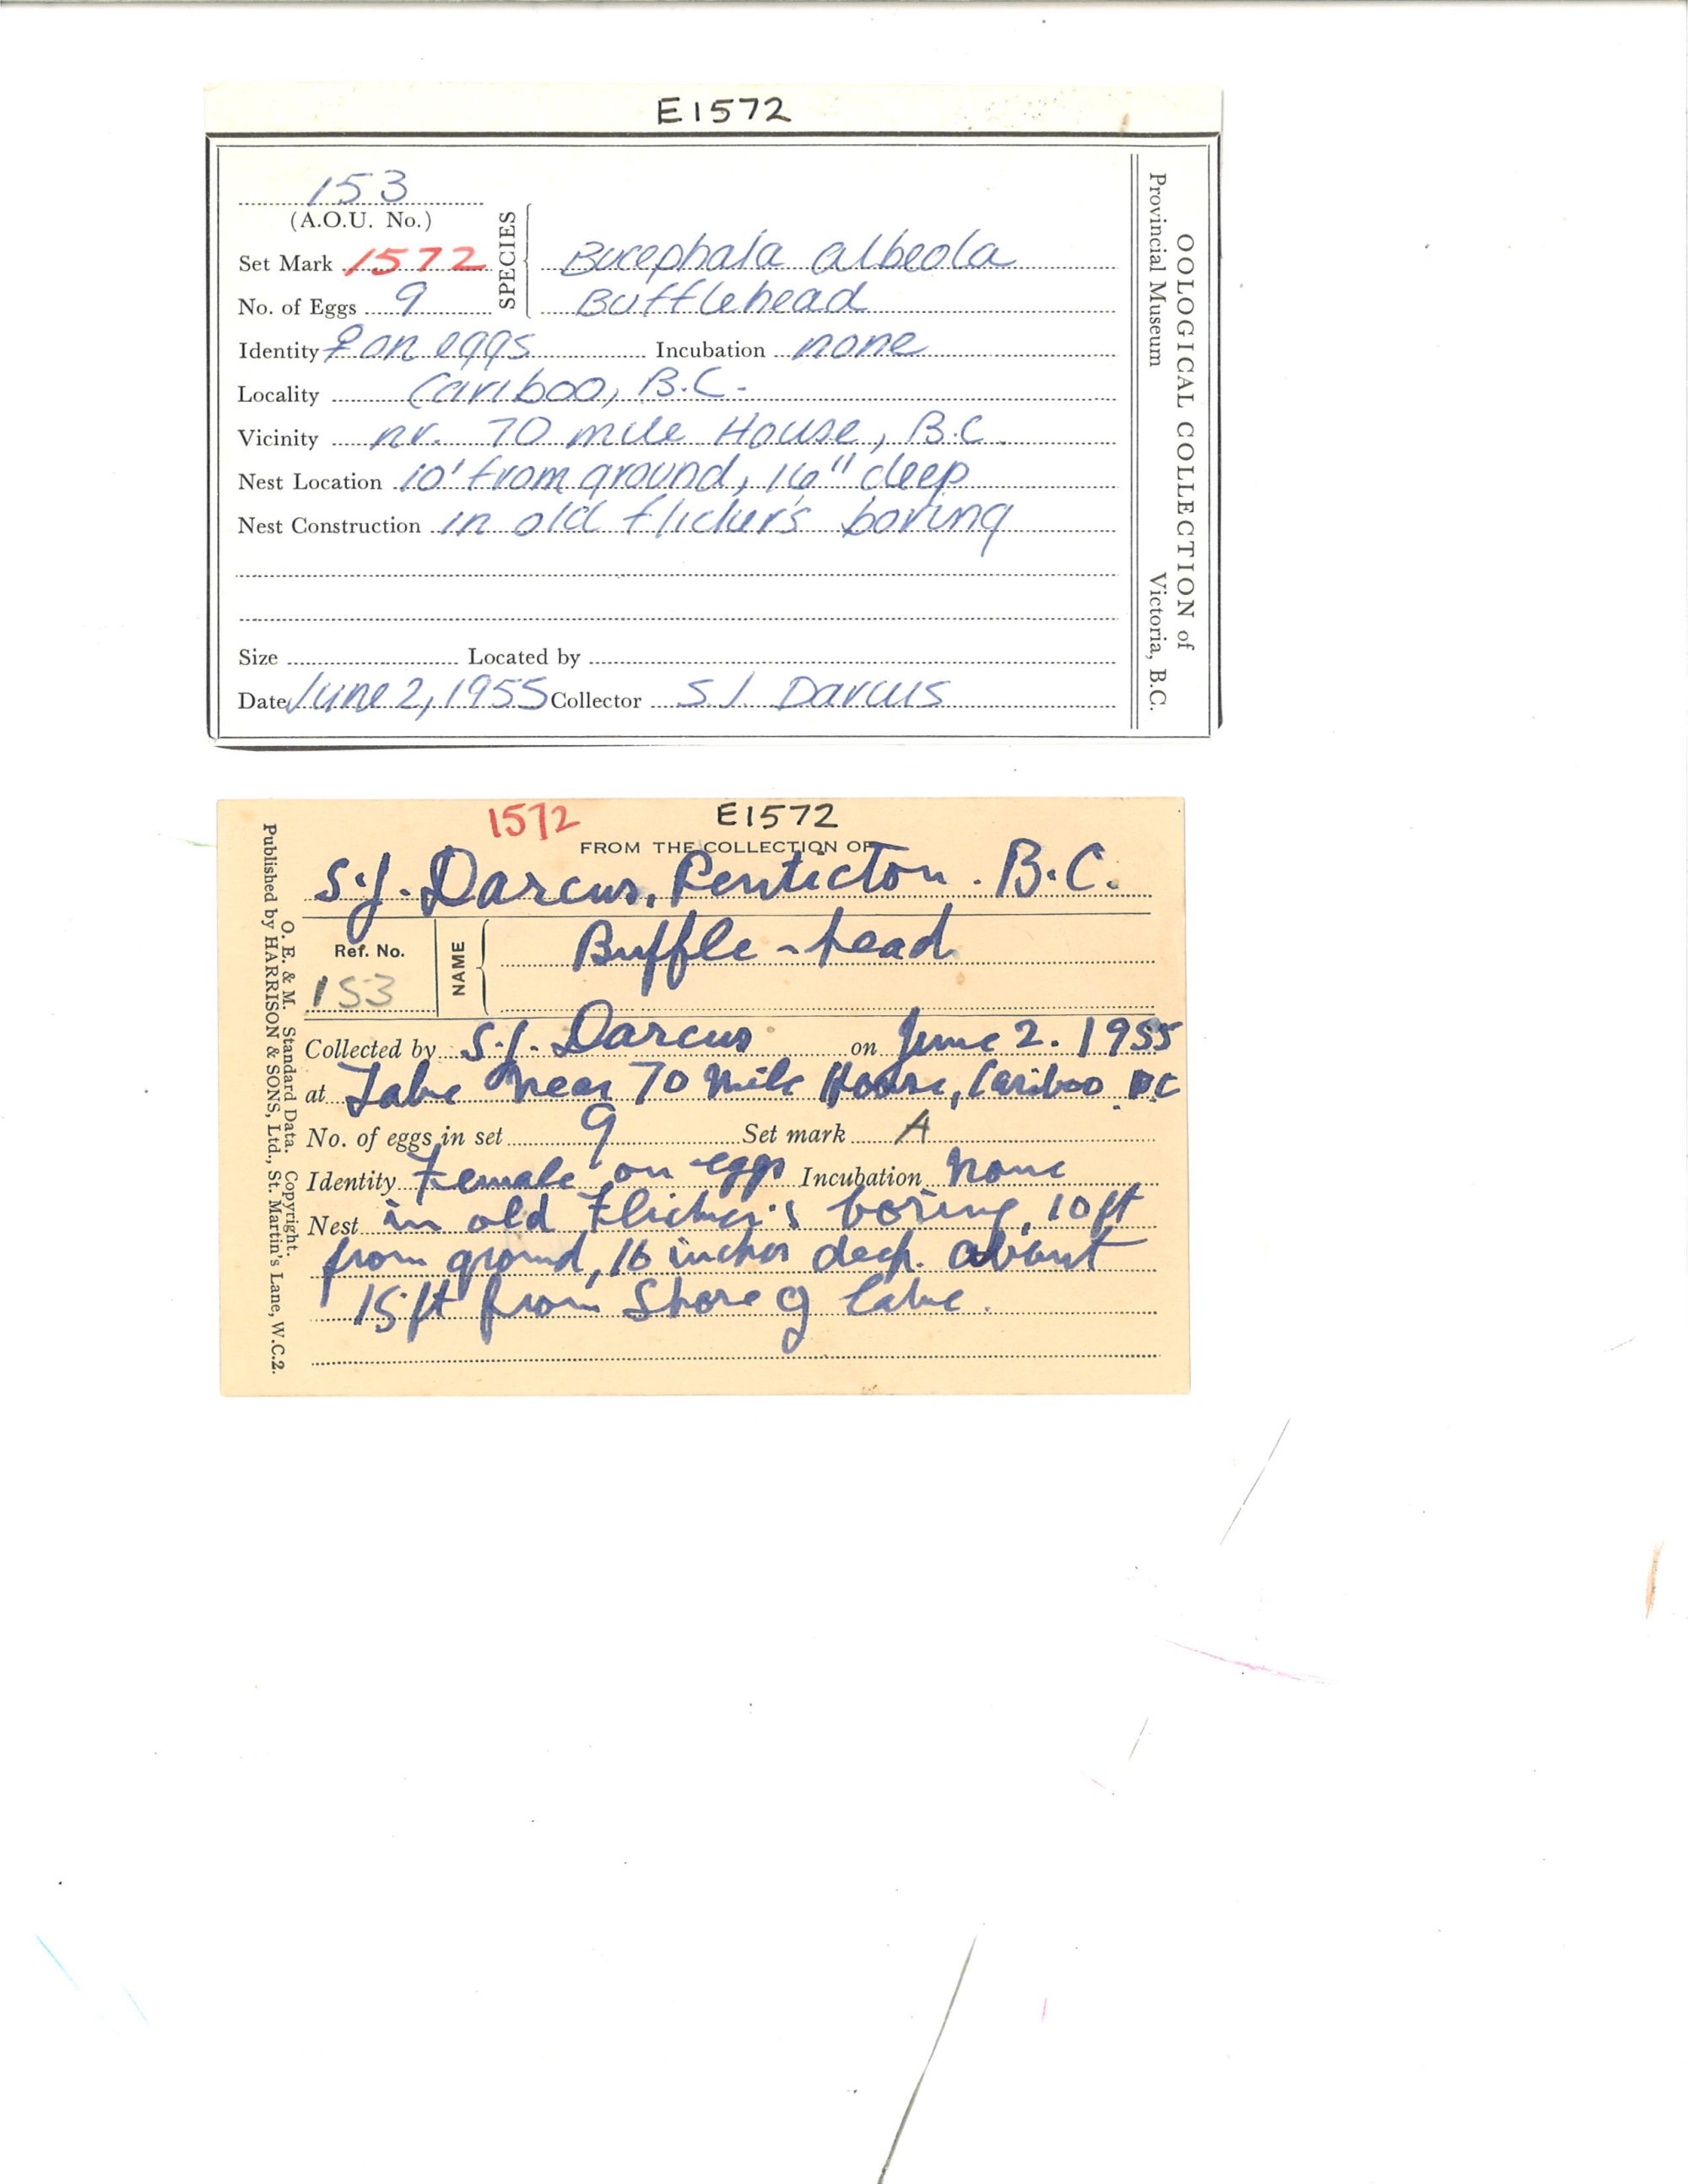 E1572
153
(A.O.U. No.)
SPECIES
Set Mark 1572 Bucephala albeola
No. of Eggs 9 Bufflehead
Identity ♀ on eggs Incubation none
Locality Cariboo, B.C.
Vicinity nr. 70 mile House, B.C.
Nest Location 10' from ground, 16" deep
Nest Construction in old flicker's boring
Size Located by
Date June 2, 1955 Collector S.J. Darcus
OOLOGICAL COLLECTION of
Provincial Museum Victoria, B.C.
1572 E1572
FROM THE COLLECTION OF
S.J. Darcus, Penticton. B.C.
Ref. No. NAME Buffle-head
153
Collected by S.J. Darcus on June 2. 1955
at Lake near 70 Mile House, Cariboo BC
No. of eggs in set 9 Set mark A
Identity Female on eggs Incubation None
Nest in old Flicker's boring, 10 ft
from ground, 16 inches deep. about
15 ft from Shore of lake.
O. E. & M. Standard Data. Copyright.
Published by HARRISON & SONS, Ltd., St. Martin's Lane, W.C.2.